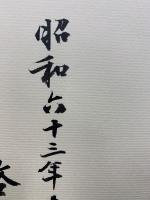 昭和六十三年